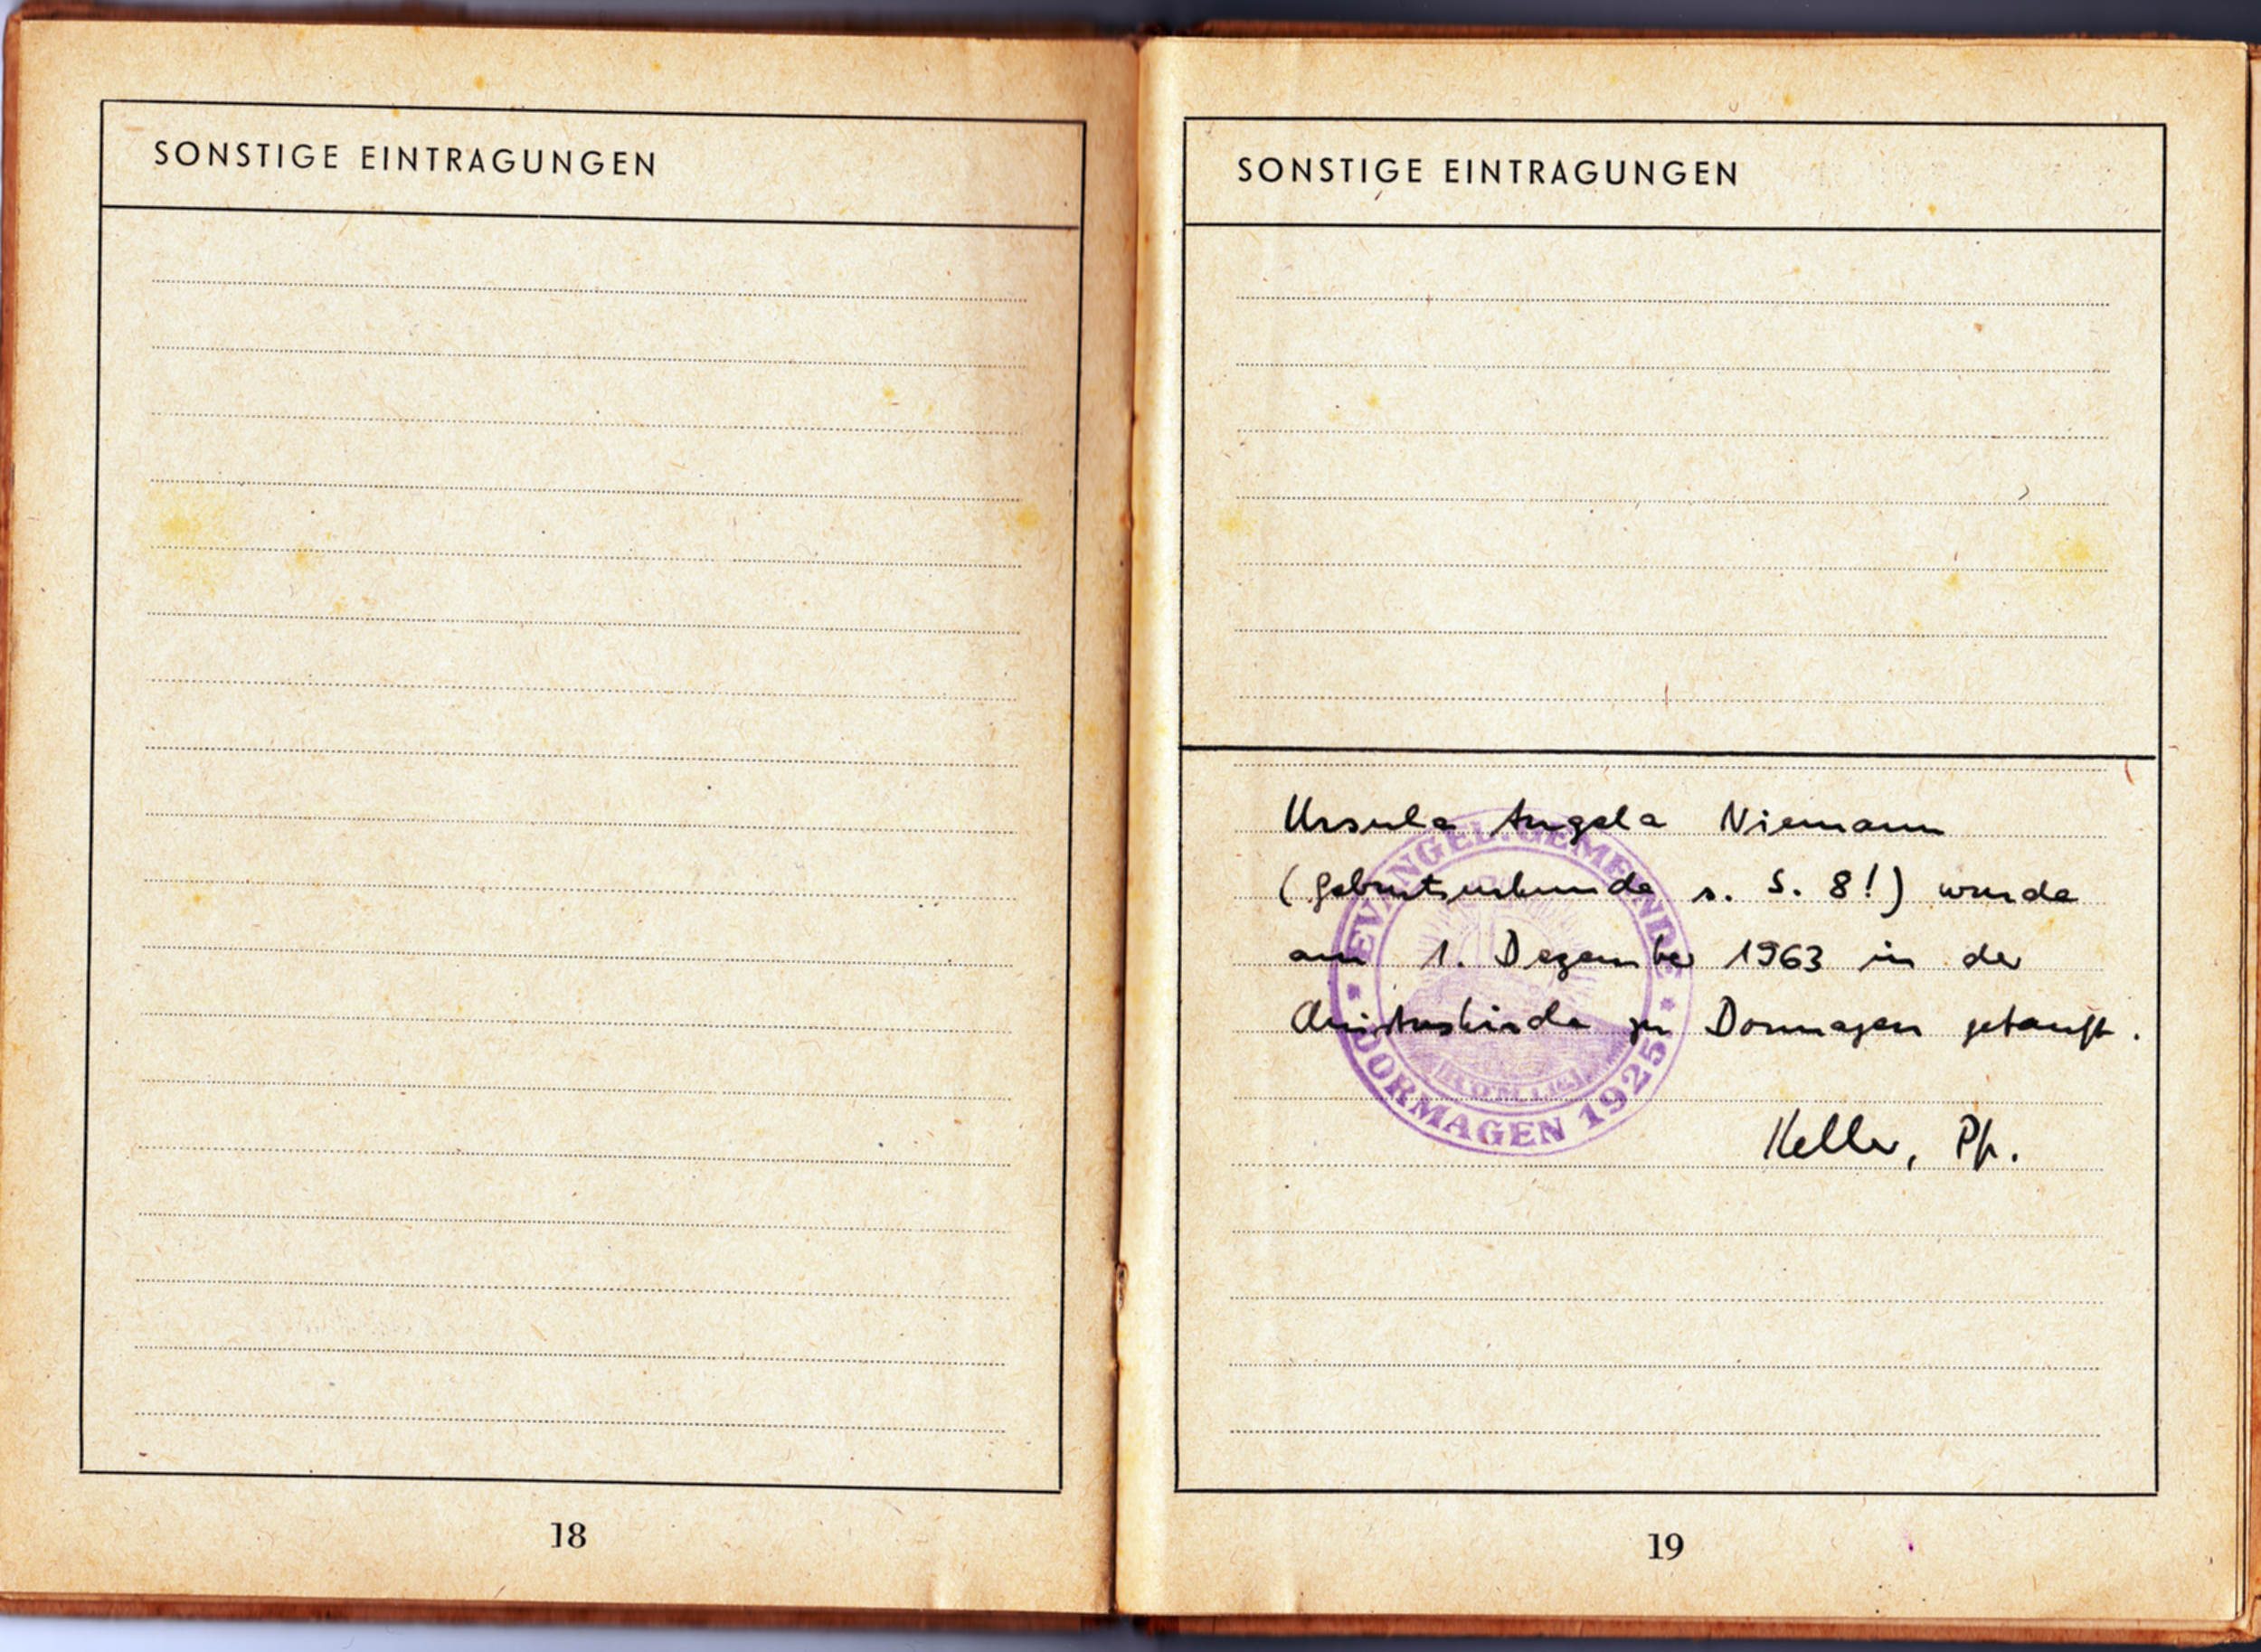 SONSTIGE EINTRAGUNGEN
18
SONSTIGE EINTRAGUNGEN
Ursula Angela Niemann
(Geburtsurkunde s. S. 8!) wurde
am 1. Dezember 1963 in der
Christuskirche zu Dormagen getauft.
Keller, Pfr.
EVANGEL. GEMEINDE
DORMAGEN 1925
19